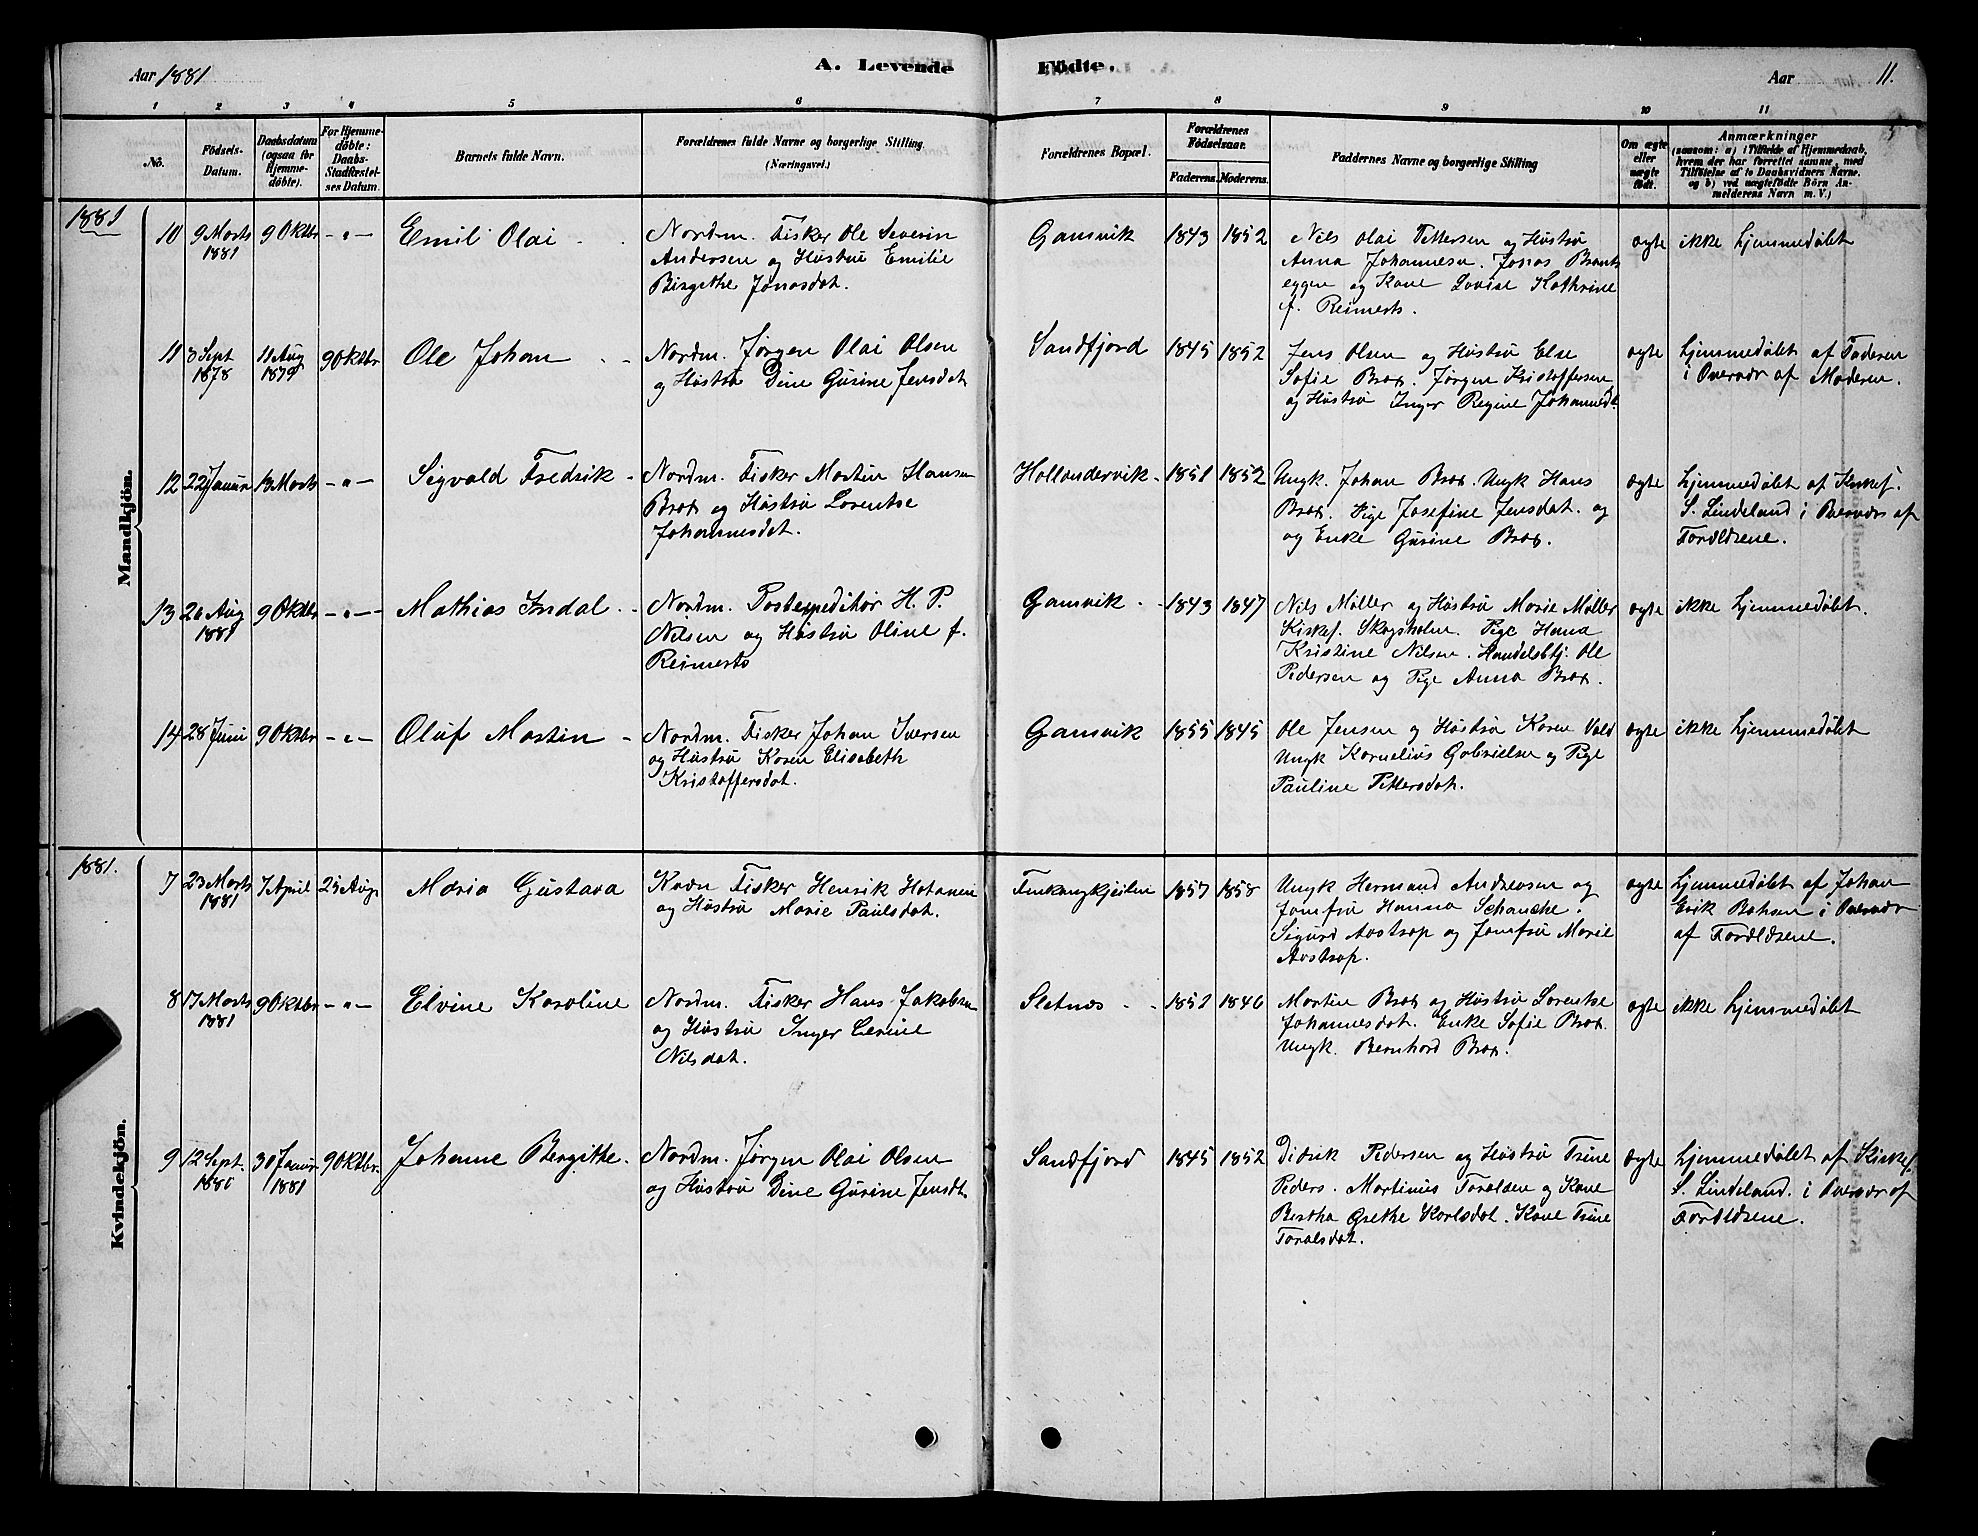 Aar 1881
A. Levende
Födte.
Aar
11.
1 2 3 4 5 6 7 8 9 10 11
No.
Födsels-
Datum.
Daabsdatum
(ogsaa for
Hjemme-
döbte).
For Hjemme-
döbte:
Daabs-
Stadfæstel-
ses Datum.
Barnets fulde Navn.
Forældrenes fulde Navne og borgerlige Stilling
(Næringsvei.)
Forældrenes Bopæl.
Forældrenes
Födselsaar.
Faderens. Moderens.
Faddernes Navne og borgerlige Stilling
Om ægte
eller
uægte
födt.
Anmærkninger
(saasom: a) i Tilfælde af Hjemmedaab,
hvem der har forrettet samme, med
Tilföielse af to Daabsvidners Navne,
og b) ved uægtefödte Börn An-
melderens Navn m. V.)
1881
Mandkjön.
10 9 Marts
1881
9 Oktbr
Emil Olai
Nordm. Fisker Ole Severin
Andersen og Hustru Emilie
Birgithe Jonasdat.
Gamvik 1843 1852
Nils Olai Pettersen og Hustru
Anna Johannesen. Jonas Brants
eggen og Kone Lovise Kathrine
f. Reimerts.
ægte
ikke hjemmedøbt
11 3 Sept
1878
11 Aug
1879
9 Oktbr
Ole Johan
Nordm. Jørgen Olai Olsen
og Hustru Dine Gurine Jensdat
Sandfjord 1845 1852
Jens Olsen og Hustru Else
Sofie Brox. Jørgen Kristoffersen
og Hustru Inger Regine Johannesd.
ægte
hjemmedøbt af Faderen
i Overvær af Moderen.
12 22 Januar 13 Marts
Sigvald Fredrik
Nordm. Fisker Martin Hansen
Brox og Hustru Lorentse
Johannesdat.
Hollendervik 1851 1852
Ungk. Johan Brox. Ungk Hans
Brox. Pige Josefine Jensdat. og
og Enke Gurine Brox.
ægte
hjemmedøbt af Kirkes.
S. Lindeland i Overvær af
Forældrene.
13 26 Aug
1881
9 Oktbr
Mathias Indal
Nordm. Postexpeditør H. P.
Nilsen og Hustru Oline f.
Reimerts
Gamvik 1843 1847
Nils Møller og Hustru Marie Møller
Kirkes. Skogsholm. Pige Hana
Kristine Nilsen. Handelsbtj. Ole
Pedersen og Pige Anna Brox.
ægte
ikke hjemmedøbt.
14 28 Juni 9 Oktbr
Oluf Martin
Nordm. Fisker Johan Iversen
og Hustru Karen Elisabeth
Kristoffersdat.
Gamvik 1855 1845
Ole Jensen og Hustru Karen Vald
Ungk Kornelius Gabrielsen og Pige
Pauline Pettersdat.
ægte
ikke hjemmedøbt
1881.
Kvindekjön.
7 23 Marts
1881
7 April 25 Aug.
Maria Gustava
Kvæn Fisker Henrik Hatanen
og Hustru Marie Paulsdat.
Finkongkjeilen 1857 1858
Ungk Hermand Andreasen og
Jomfru Hanna Schanche.
Sigurd Aastrop og Jomfru Marie
Aastrop.
ægte
hjemmedøbt af Johan
Erik Bahsen i Overvær
af Forældrene.
8 17 Marts
1881
9 Oktbr
Elvine Karoline
Nordm. Fisker Hans Jakobsen
og Hustru Inger Serine
Nilsdat.
Sletnes 1852 1846
Martin Brox og Hustru Lorentse
Johannesdat. Enke Sofie Brox.
Ungk. Bernhard Brox.
ægte
ikke hjemmedøbt
9 12 Sept.
1880
30 Januar
1881
9 Oktbr.
Johanne Bergithe.
Nordm. Jørgen Olai Olsen
og Hustru Dine Gurine Jensdt
Sandfjord 1845 1852
Didrik Pedersen og Hustru Trine
Peders. Martinus Toralden og Kone
Bertha Grethe Karlsdat. Kone Trine
Toralsdat.
ægte
hjemmedøbt af Kirkes.
S. Lindeland. i Overvær af
Forældrene.